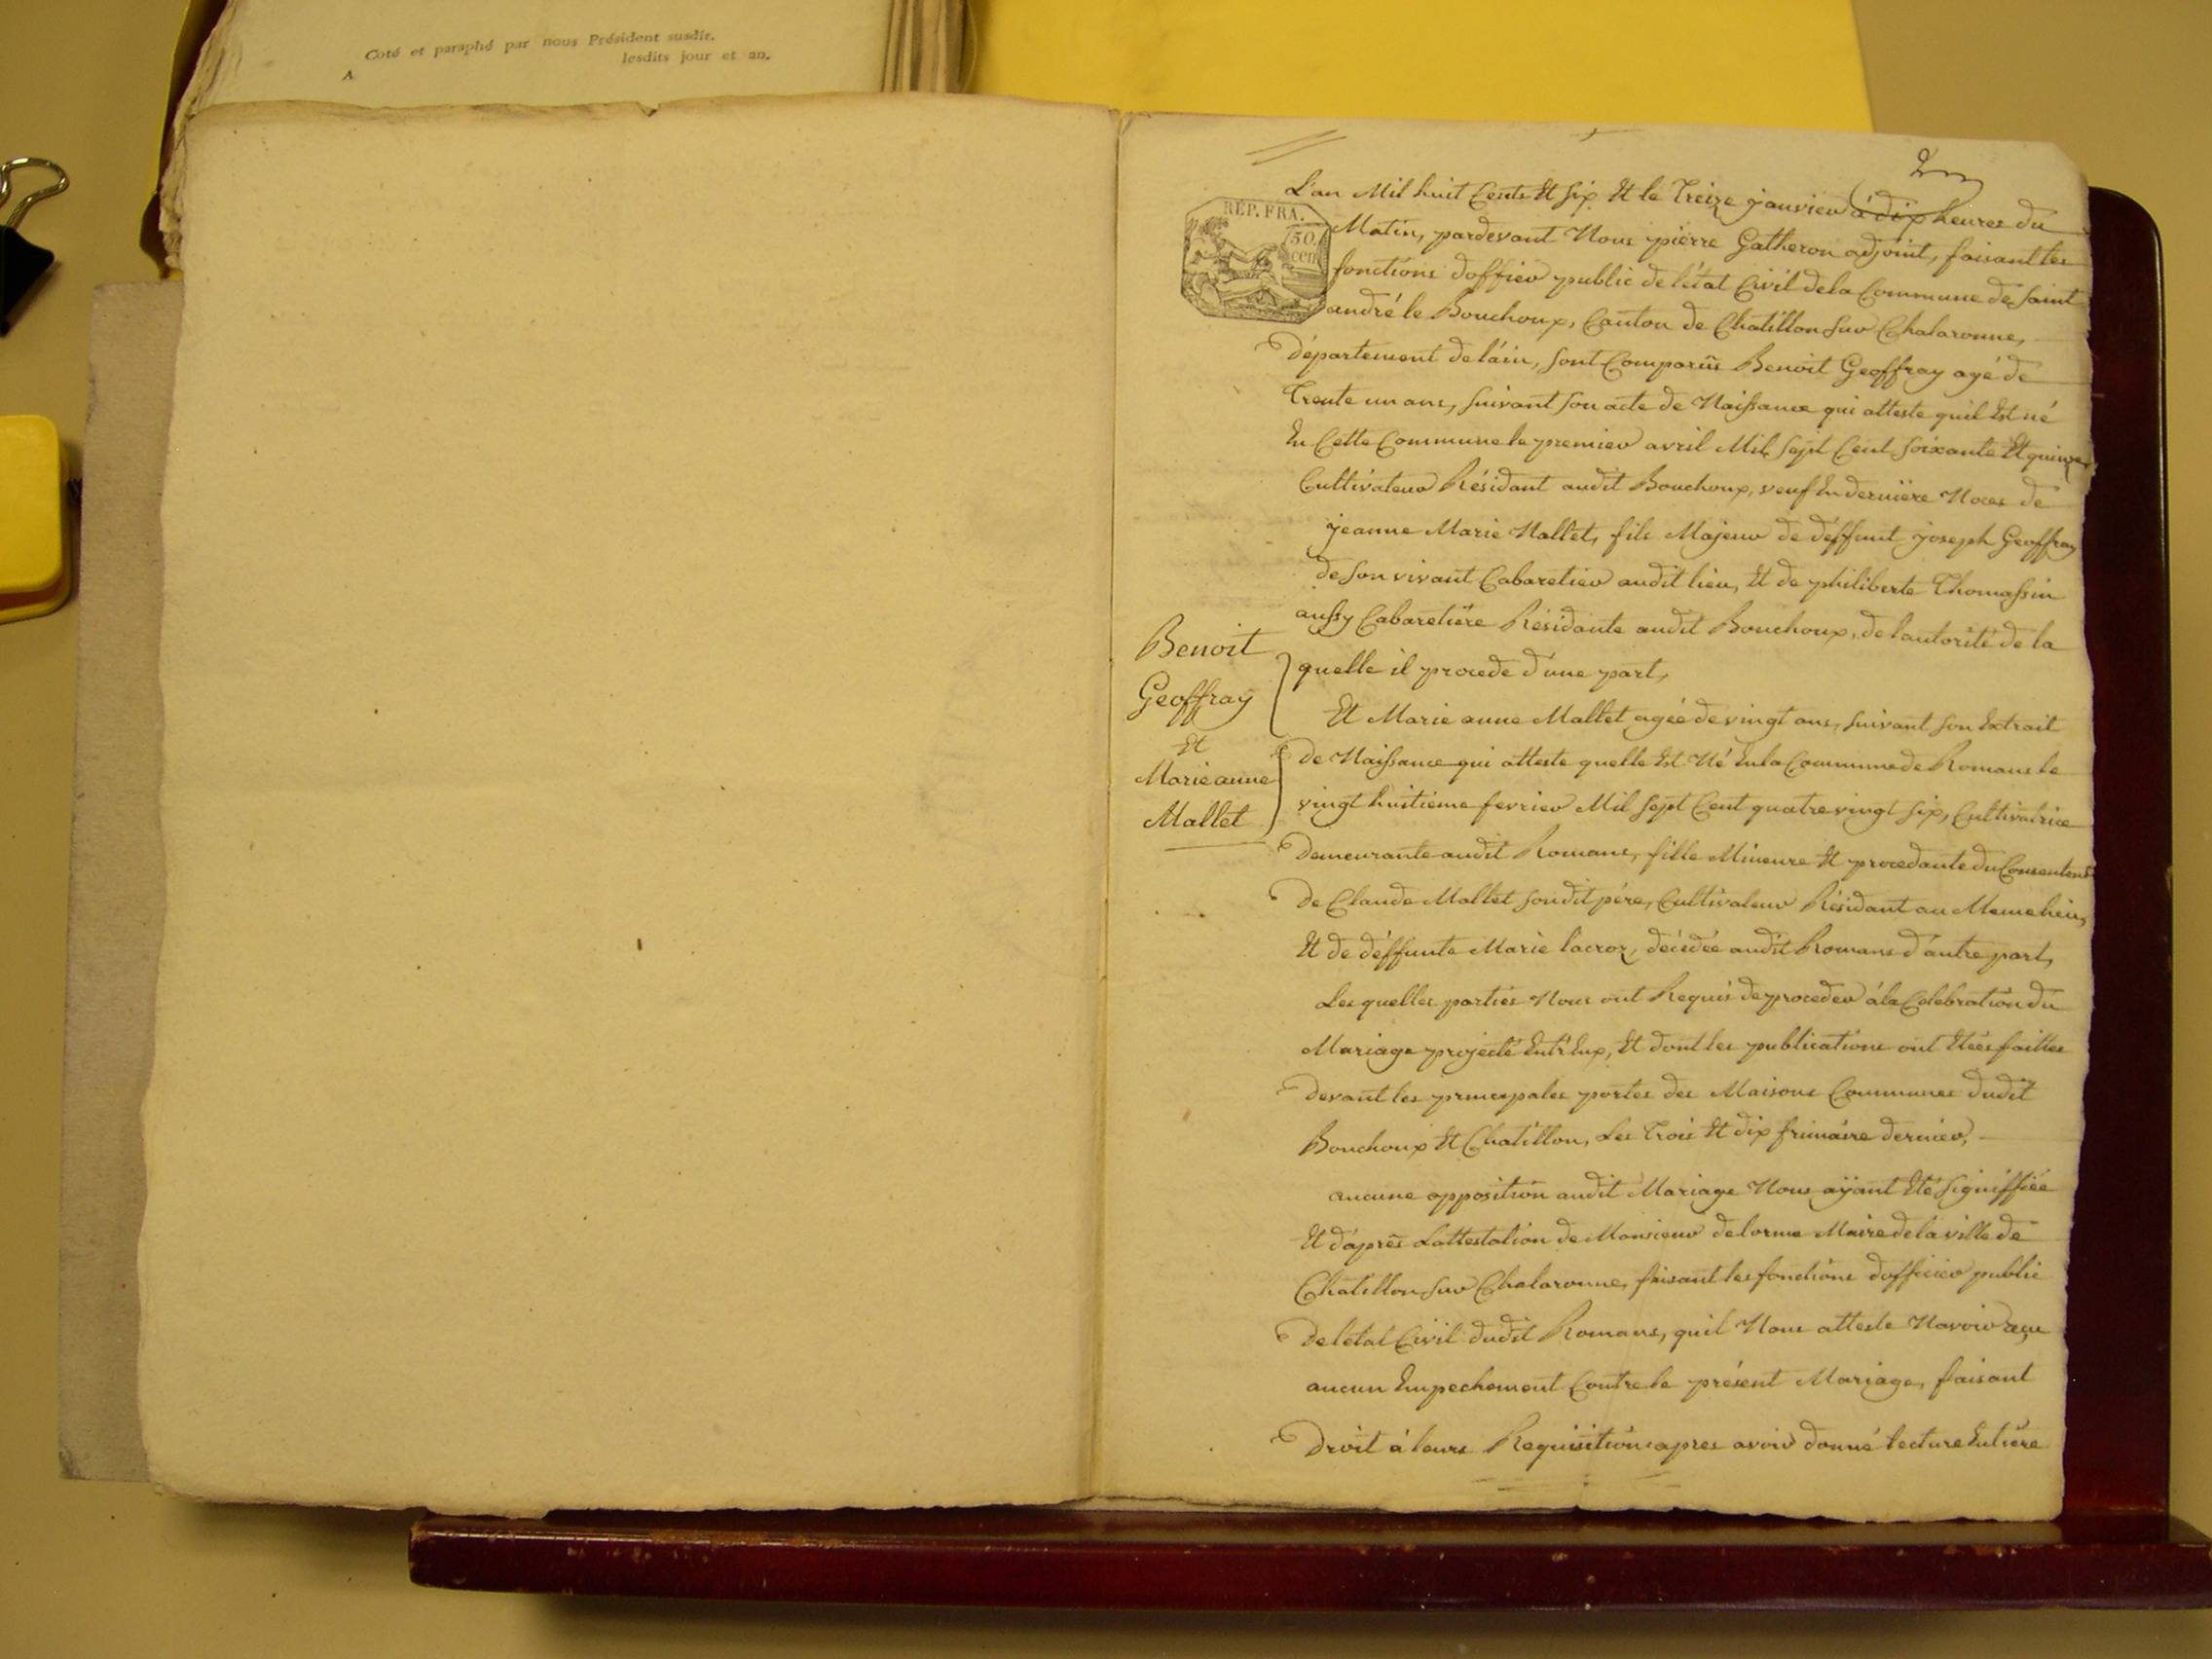 Coté et paraphé par nous Président susdit.
lesdits jour et an.
A
REP. FRA.
50.
cen
L'an Mil huit Cents Et Six Et le Treize janvier à dix heures du
Matin, pardevant Nous pierre Gatheron adjoint, faisant les
fonctions d'offier public de l'état Civil dela Commune de Saint
andré le Bouchoux, Canton de Chatillon Sur Chalaronne,
Département de l'ain, Sont Comparûs Benoit Geoffray agé de
Trente un ans, Suivant Son acte de Naissance qui atteste quil Est né
En Cette Commune le premier avril Mil Sept Cent Soixante Et quinze
Cultivateur Résidant audit Bouchoux, veuf En dernière Noces de
jeanne Marie Nallet, fils Majeur de déffunt joseph Geoffray
de Son vivant Cabaretier audit lieu, Et de philiberte Thomassin
aussy Cabaretière Résidante audit Bouchoux, de l'autorité de la
quelle il procede d'une part,
Benoit
Geoffray
Et
Marie anne
Mallet
Et Marie anne Mallet agée de vingt ans, Suivant Son Extrait
de Naissance qui atteste quelle Est Né En la Commune de Romans le
vingt huitieme fevrier Mil Sept Cent quatre vingt Six, Cultivatrice
Demeurante audit Romans, fille Mineure Et procedante du Consentemt
De Claude Mallet Sondit père, Cultivateur Résidant au Meme lieu,
Et de déffunte Marie lacroz, décédée audit Romans d'autre part,
Les quelles parties Nous ont Requis de proceder à la Celebration du
Mariage projeté Entr'Eux, Et dont les publications ont Etées faittes
devant les principales portes des Maisons Communes dudit
Bouchoux Et Chatillon, Les Trois Et dix frimaire dernier,
aucune opposition audit Mariage Nous aÿant Eté Signiffiée
Et d'après L'attestation de Monsieur delorme Maire de la ville de
Chatillon Sur Chalaronne, faisant les fonctions d'officier public
De l'état Civil dudit Romans, quil Nous atteste Navoir reçu
aucun Empechement Contre le présent Mariage, faisant
Droit à leurs Requisition apres avoir donné lecture Entière